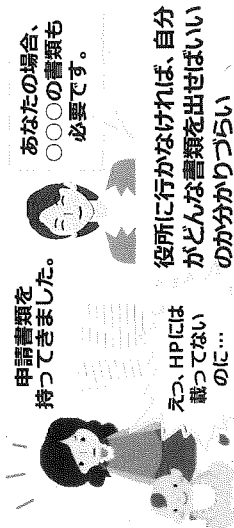 申請書類を
持ってきました。
あなたの場合、
○○○の書類も
必要です。
えっ、HPには
載ってない
のに…
役所に行かなければ、自分
がどんな書類を出せばいい
のか分かりづらい